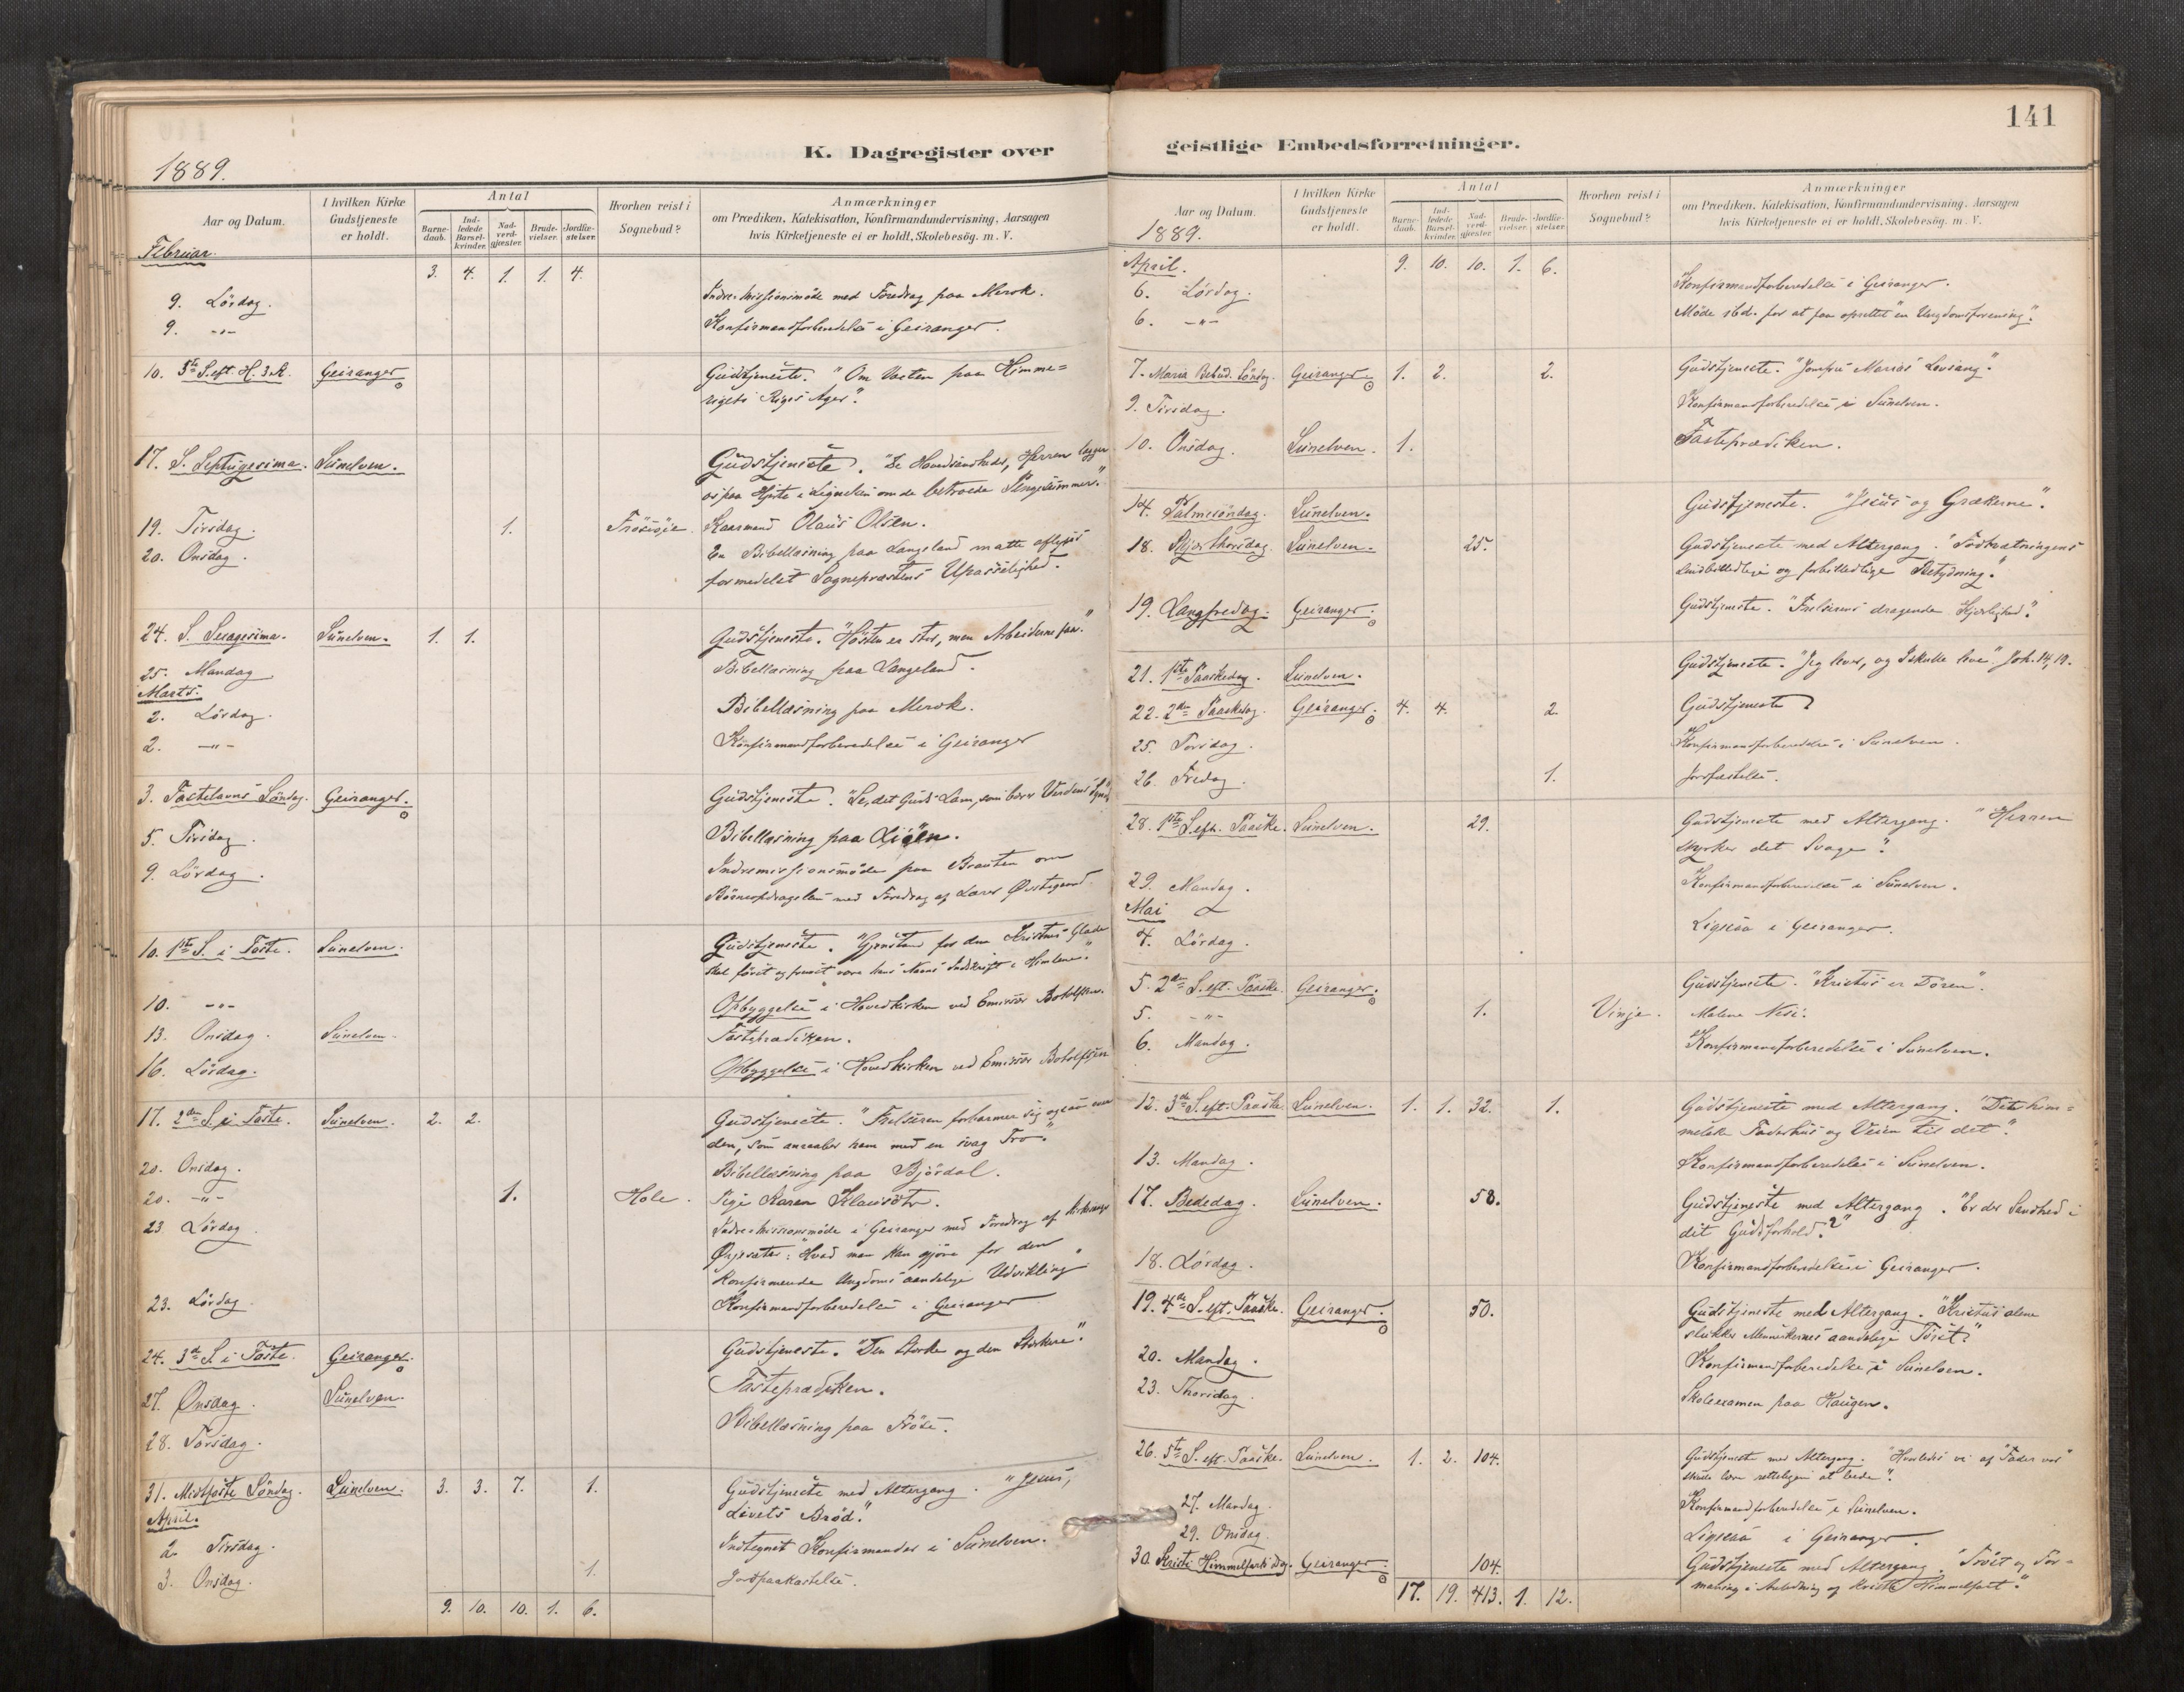 1889.
K. Dagregister over
Aar og Datum.
I hvilken Kirke
Gudstjeneste
er holdt.
Antal
Barne-
daab.
Ind-
ledede
Barsel-
kvinder.
Nad-
verd-
gjæster.
Brude-
vielser.
Jordfæ-
stelser.
Hvorhen reist i
Sognebud?
Anmærkninger
om Prædiken, Katekisation, Konfirmandundervisning, Aarsagen
hvis Kirketjeneste ei er holdt, Skolebesøg. m. V.
Februar.
3. 4. 1. 1. 4.
9. Lördag. Indre-Missionsmöde med Foredrag paa Merok.
9. -"- Konfirmandforberedelse i Geiranger.
10. 5te S. eft. H. 3. K. Geiranger Gudstjeneste. "Om Væxten paa Himme-
rigets Riges Ager".
17. S. Septuagesima. Sunelven. Gudstjeneste. "De Hovedsandheder, Herren lægger
os paa Hjerte i Lignelsen om de betroede Pengesummer."
19. Tirsdag. 1. Kaarmand Olaus Olsen.
20. Onsdag. En Bibellæsning paa Langeland matte aflyses
formedelst Sognepræstens Upasselighed.
24. S. Sexagesima. Sunelven. 1. 1. Gudstjeneste. "Hösten er stor, men Arbeiderne faa."
25. Mandag Bibellæsning paa Langeland.
Marts.
2. Lördag. Bibellæsning paa Merok.
2. -"- Konfirmandforberedelse i Geiranger
3. Fastelavns Söndag. Geiranger. Gudstjeneste. "Se, det Guds Lam, som bærer Verdens Synd"
5. Tirsdag. Bibellæsning paa Liöen.
9. Lördag. Indremissionsmöde paa Brauten om
Börneopdragelsen med Foredrag af Lærer
10. 1ste S. i Faste. Sunelven. Gudstjeneste. "Gjenstand for den Kristnes Glæde
skal först og fremst være hans Navns Indskrift i Himlene."
10. -"- Opbyggelse i Hovedkirken ved Emissær Botolfsen.
13. Onsdag. Sunelven. Fasteprædiken.
16. Lördag. Opbyggelse i Hovedkirken ved Emissær Botolfsen
17. 2den S. i Faste. Sunelven. 2. 2. Gudstjeneste. "Frelseren forbarmer sig ogsaa over
den, som anraaber ham med en svag Tro."
20. Onsdag. Bibellæsning paa Björdal.
20. -"- 1. Hole. Pige Karen Klausdtr.
23. Lördag Indre-Missionsmöde i Geiranger med Foredrag af
"Hvad man kan gjöre for den
konfirmerede Ungdoms aandelige Udvikling"
23. Lördag. Konfirmandforberedelse i Geiranger
24. 3die S. i Faste. Geiranger. Gudstjeneste. "Den Stærke og den Stærkere".
27. Onsdag. Sunelven. Fasteprædiken.
28. Torsdag. Bibellæsning paa Fröse.
31. Midfaste Söndag. Sunelven. 3. 3. 7. 1. Gudstjeneste med Altergang. "Jesus,
Livets Bröd."
April.
2. Tirsdag. Indtegnet Konfirmander i Sunelven.
3. Onsdag. 1. Jordpaakastelse.
9. 10. 10. 1. 6.
141
geistlige Embedsforretninger.
Aar og Datum.
1889.
I hvilken Kirke
Gudstjeneste
er holdt.
Antal
Barne-
daab.
Ind-
ledede
Barsel-
kvinder.
Nad-
verd-
gjæster.
Brude-
vielser.
Jordfæ-
stelser.
Hvorhen reist i
Sognebud?
Anmærkninger
om Prædiken, Katekisation, Konfirmandundervisning, Aarsagen
hvis Kirketjeneste ei er holdt, Skolebesøg. m. V.
April. 9. 10. 10. 1. 6.
6. Lördag. Konfirmandforberedelse i Geiranger.
6. -"- Möde ibd. for at faa oprettet en "Ungdomsforening".
7. Maria Bebud. Söndag. Geiranger. 1. 2. 2. Gudstjeneste. "Jomfru Marias Lovsang".
9. Tirsdag. Konfirmandforberedelse i Sunelven.
10. Onsdag. Sunelven. 1. Fasteprædiken.
14. Palmesöndag. Sunelven. Gudstjeneste. "Jesus og Grækerne".
18. Skjærthorsdag. Sunelven. 25. Gudstjeneste med Altergang. "Fodtvætningens
sindbilledlige og forbilledlige Betydning."
19. Langfredag. Geiranger. Gudstjeneste. "Frelserens dragende Kjærlighed".
21. 1ste Paaskedag. Sunelven. Gudstjeneste. "Jeg lever, og I skulle leve" Joh. 14, 19.
22. 2den Paaskedag. Geiranger. 4. 4. 2. Gudstjeneste
25. Torsdag. Konfirmandforberedelse i Sunelven.
26. Fredag. 1. Jordfæstelse.
28. 1ste S. eft. Paaske. Sunelven. 29. Gudstjeneste med Altergang. "Herren
styrker det Svage".
29. Mandag. Konfirmandforberedelse i Sunelven.
Mai
4. Lördag. Ligsaa i Geiranger.
5. 2den S. eft. Paaske. Geiranger. Gudstjeneste. "Kristus er Dören".
5. -"- 1. Vinje. Malene Nese.
6. Mandag. Konfirmandforberedelse i Sunelven.
12. 3die S. eft. Paaske. Sunelven. 1. 1. 32. 1. Gudstjeneste med Altergang. "Det him-
melske Faderhus og Veien til det".
13. Mandag. Konfirmandforberedelse i Sunelven.
17. Bededag. Sunelven. 58. Gudstjeneste med Altergang. "Er der Sandhed i
dit Gudsforhold?"
18. Lördag. Konfirmandforberedelse i Geiranger.
19. 4de S. eft. Paaske. Geiranger. 50. Gudstjeneste med Altergang. "Kristus alene
slukker Menneskenes aandelige Törst."
20. Mandag. Konfirmandforberedelse i Sunelven.
23. Thorsdag. Skoleexamen paa Haugen.
26. 5te S. eft. Paaske. Sunelven. 1. 2. 104. Gudstjeneste med Altergang. "Hvorledes vi af "Fader vor"
skulle lære rettelig at bede".
27. Mandag. Konfirmandforberedelse i Sunelven.
29. Onsdag. Ligsaa i Geiranger.
30. Kristi Himmelfartsdag. Geiranger. 104. Gudstjeneste med Altergang. "Tröst og For-
maning i Anledning af Kristi Himmelfart."
17. 19. 413. 1. 12.